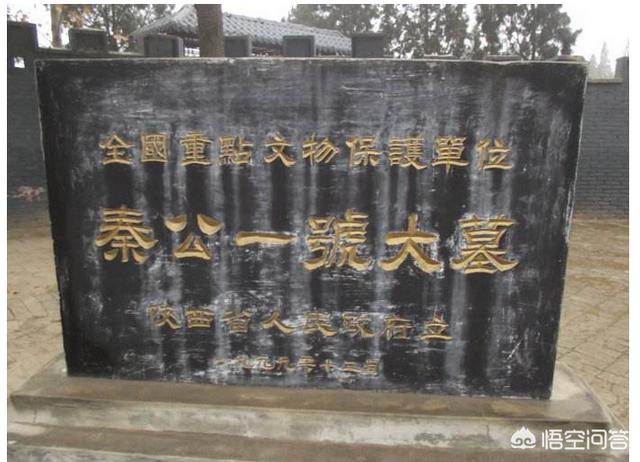 全國重點文物保護單位
秦公一號大墓
陝西省人民政府立
一九九九年十二月
悟空问答